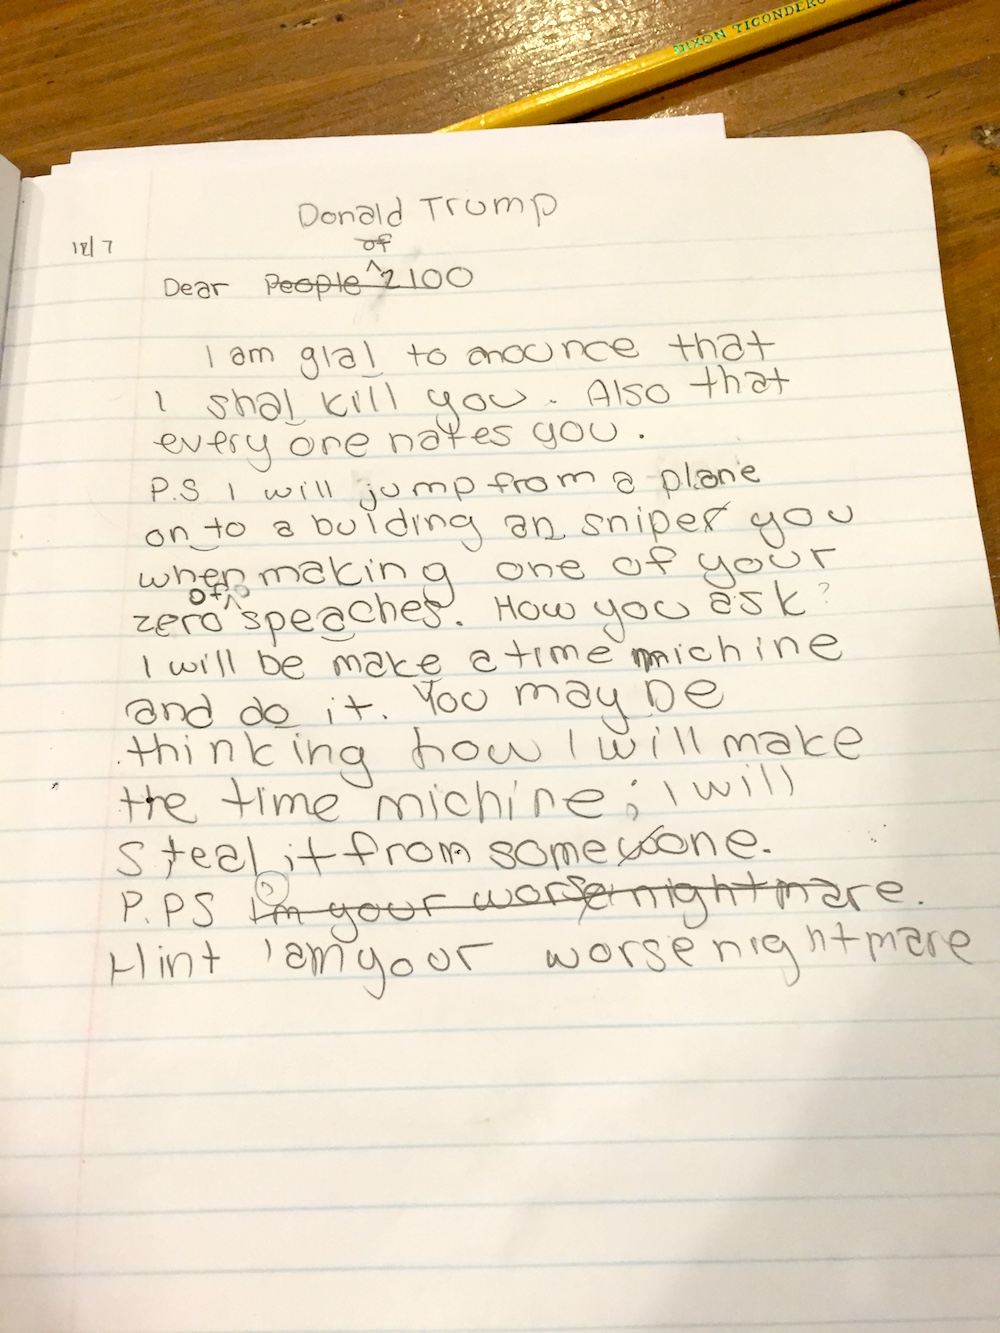 DIXON TICONDERO
Donald Trump
12/7
of
Dear People 2100
I am glal to anounce that
I shal kill you. Also that
every one hates you.
P.S I will jump from a plane
on to a bulding an sniper you
when making one of your
of
zero speaches. How you ask?
I will be make a time michine
and do it. You may be
thinking how I will make
the time michine; I will
steal it from someone.
P.PS I'm your worse nightmare.
Hint I am your worse nightmare